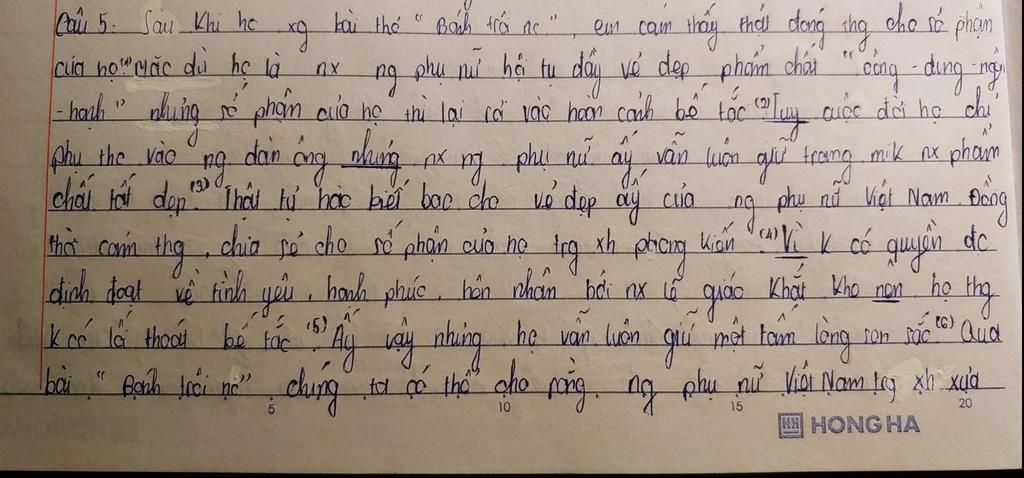 Câu 5: Sau khi hc xg bài thơ "Bánh trôi nc", em cảm thấy thật đáng thg cho số phận
của họ⁽¹⁾ Mặc dù họ là nx ng phụ nữ hội tụ đầy vẻ đẹp phẩm chất "công - dung - ngôn
- hạnh" nhưng số phận của họ thì lại rơi vào hoàn cảnh bế tắc⁽²⁾. Tuy cuộc đời họ chỉ
phụ thc vào ng đàn ông nhưng nx ng phụ nữ ấy vẫn luôn giữ trong mik nx phẩm
chất tốt đẹp⁽³⁾. Thật tự hào biết bao cho vẻ đẹp ấy của ng phụ nữ Việt Nam. Đồng
thời cảm thg, chia sẻ cho số phận của họ trg xh phong kiến⁽⁴⁾. Vì k có quyền đc
định đoạt về tình yêu, hạnh phúc, hôn nhân bởi nx lễ giáo khắt khe nên họ thg
k có lối thoát bế tắc⁽⁵⁾. Ấy vậy nhưng họ vẫn luôn giữ một tấm lòng son sắc⁽⁶⁾. Qua
bài "Bánh trôi nc" chúng ta có thể cho rằng ng phụ nữ Việt Nam trg xh xưa
5 10 15 20
HH HONG HA